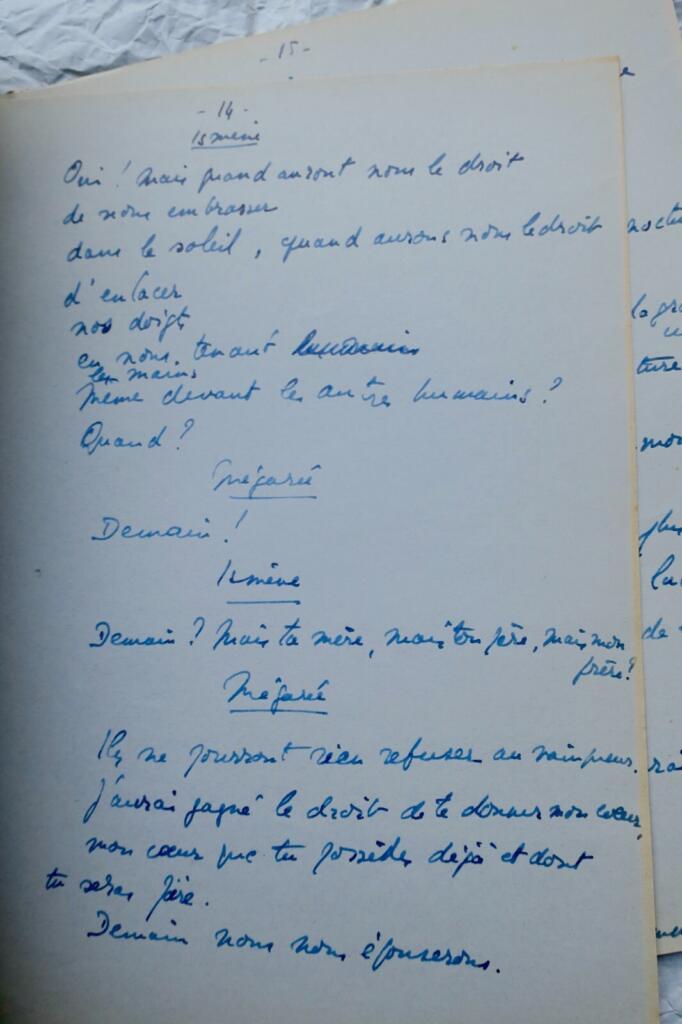 - 15 -
- 14 -
Ismène
Oui ! Mais quand auront nous le droit
de nous embrasser
dans le soleil, quand aurons nous le droit
d'enlacer
nos doigts
en nous tenant
les mains
même devant les autres humains ?
Quand ?
Mégarée
Demain !
Ismène
Demain ? Mais ta mère, mais ton père, mais mon
frère ?
Mégarée
Ils ne pourront rien refuser au vainqueur.
J'aurai gagné le droit de te donner mon cœur,
mon cœur que tu possèdes déjà et dont
tu seras fière.
Demain nous nous épouserons.